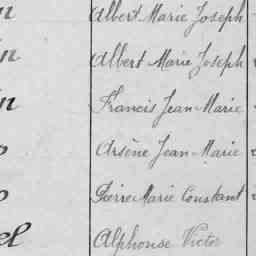 Albert Marie Joseph
Albert Marie Joseph
Francis Jean Marie
Arsène Jean Marie
Pierre Marie Constant
Alphonse Victor